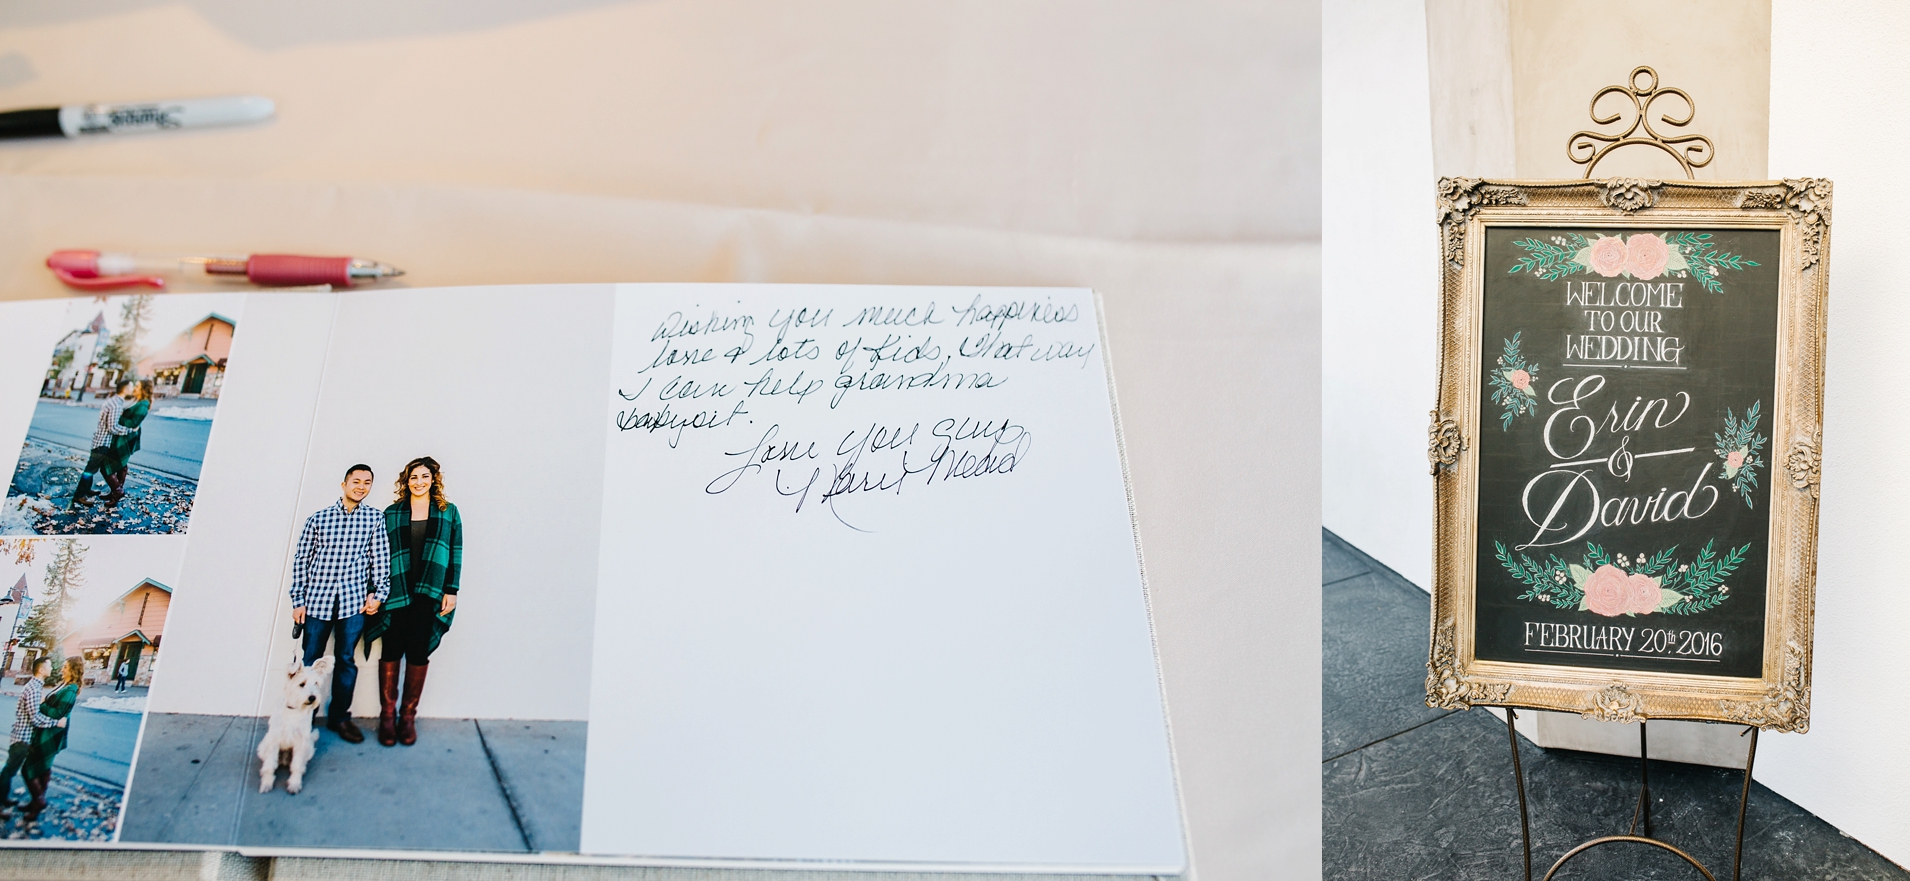 Sharpie
Wishing you much happiness
love & lots of kids, that way
I can help grandma
babysit.
Love you guys
WELCOME
TO OUR
WEDDING
Erin
&
David
FEBRUARY 20th, 2016